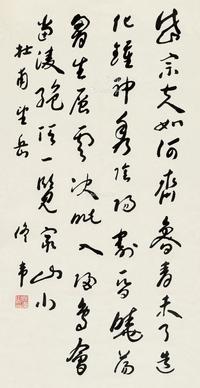 岱宗夫如何齊魯青未了造
化鍾神秀陰陽割昏曉蕩
胷生層雲決眦入歸鳥會
當凌絕頂一覽眾山小
杜甫望岳
佟韦